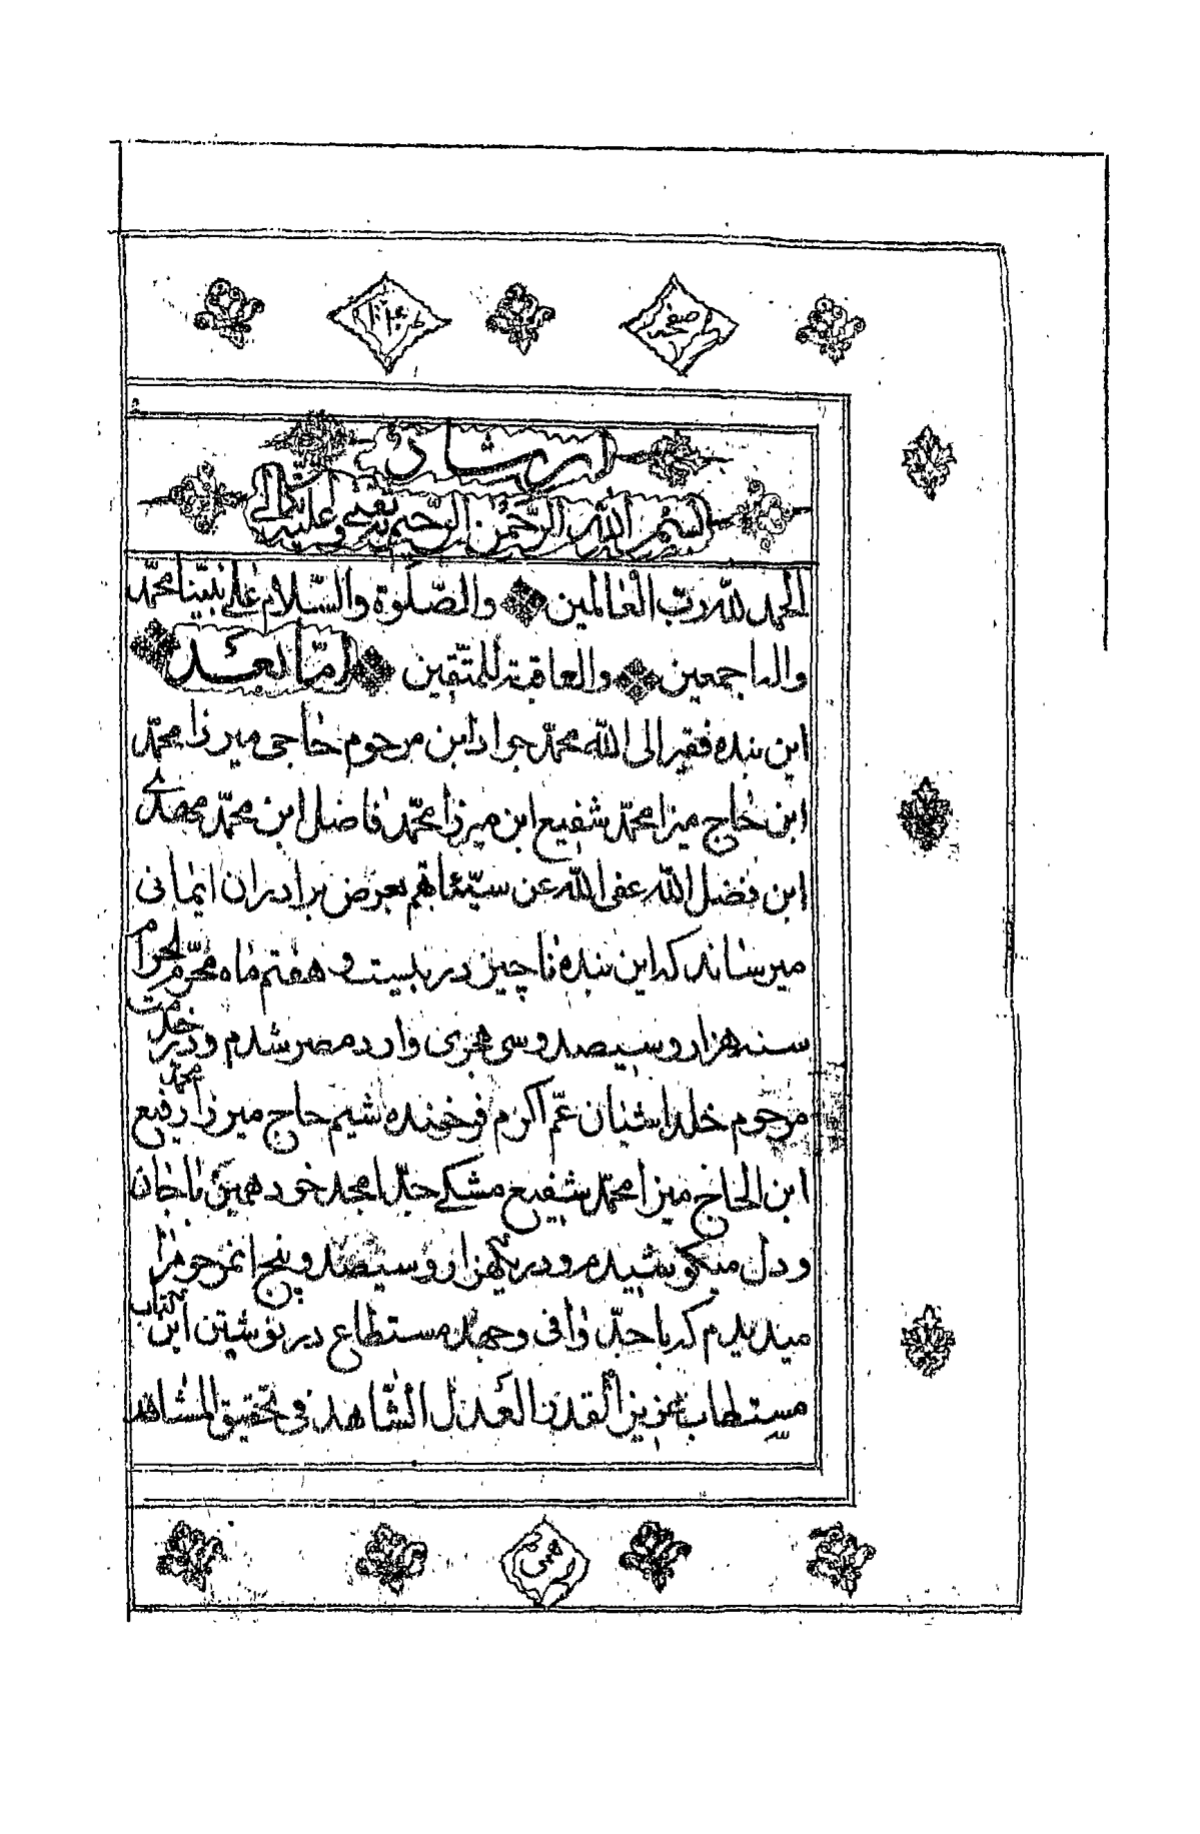 صفحه
ارشاد
بسم الله الرحمن الرحیم ثقتی وعلیه
الحمد لله ربّ العٰالمین والصّلوٰة والسّلام علی نبیّنا محمّد
واله اجمعین والعاقبة للمتّقین امّا بعد
این بنده فقیر الی الله محمّد جواد ابن مرحوم حاجی میرزا محمّد
ابن حاج میرزا محمّد شفیع ابن میرزا محمّد فاضل ابن محمّد مهدی
ابن فضل الله عفی الله عن سیّئاتهم بعرض برادران ایمانی
میرساند که این بنده ناچیز در بیست و هفتم ماه محرّم الحرام
سنه هزار و سیصد و سی هجری وارد مصر شدم و در خدمت
مرحوم خلد اشیان عمّ اکرم فرخنده شیم حاج میرزا محمّد رفیع
ابن الحاج میرزا محمّد شفیع مشکی جدّ امجد خود همین با جان
و دل میکوشیدم و در یکهزار و سیصد و پنج انمرحوم را
میدیدم که با جدّ وافی و جهد مستطاع در نوشتن این کتاب
مستطاب عزیز القدر العدل الشّاهد فی تحقیق المشاهد